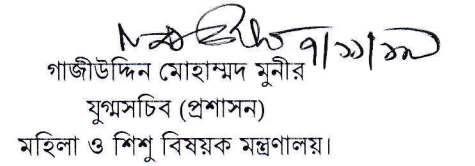 ৭/১১/১৯
গাজীউদ্দিন মোহাম্মদ মুনীর
যুগ্মসচিব (প্রশাসন)
মহিলা ও শিশু বিষয়ক মন্ত্রণালয়।